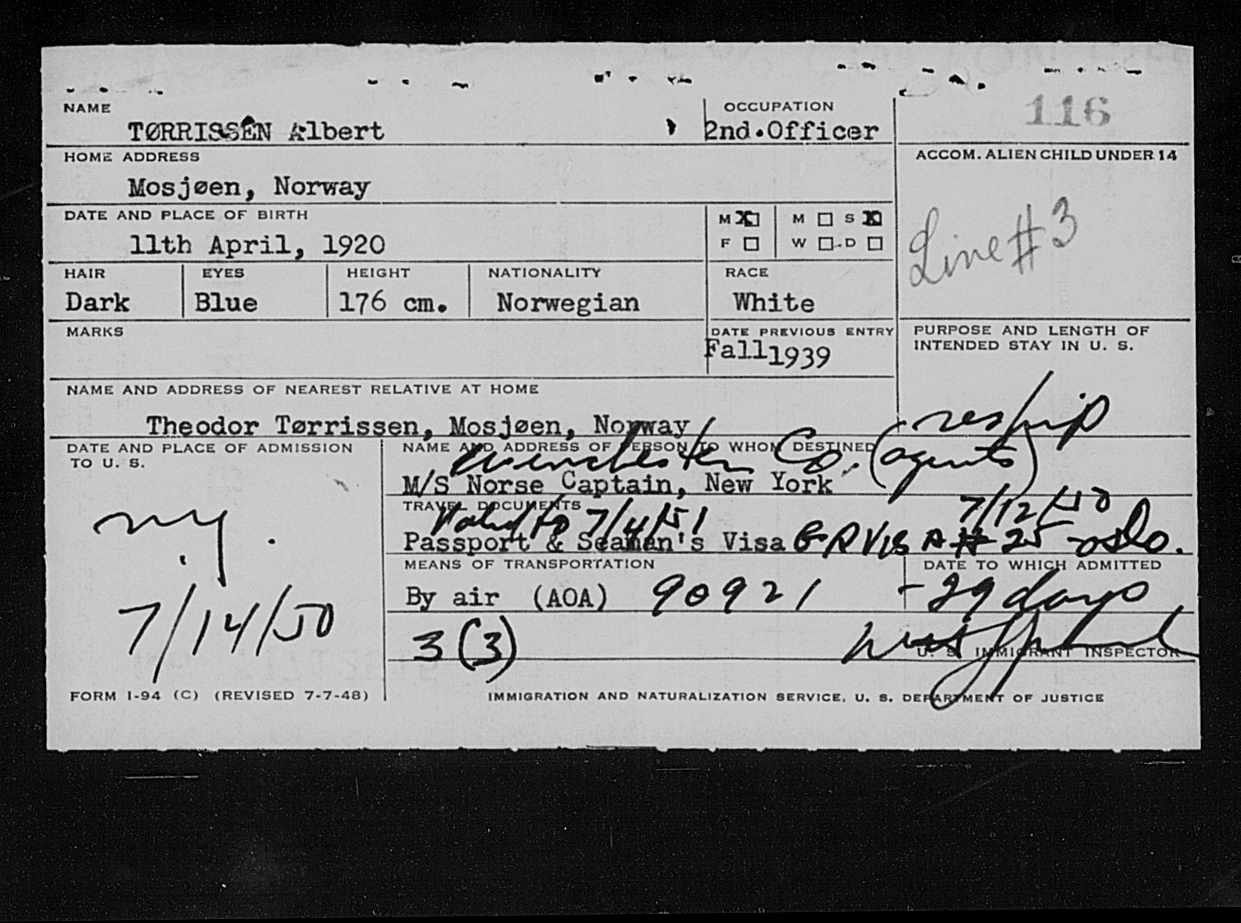 116
NAME
TØRRISSEN Albert
OCCUPATION
2nd.Officer
ACCOM. ALIEN CHILD UNDER 14
Line #3
HOME ADDRESS
Mosjøen, Norway
DATE AND PLACE OF BIRTH
11th April, 1920
M X F
M S X
W D
HAIR
Dark
EYES
Blue
HEIGHT
176 cm.
NATIONALITY
Norwegian
RACE
White
MARKS
DATE PREVIOUS ENTRY
Fall 1939
PURPOSE AND LENGTH OF
INTENDED STAY IN U. S.
reship
NAME AND ADDRESS OF NEAREST RELATIVE AT HOME
Theodor Tørrissen, Mosjøen, Norway
DATE AND PLACE OF ADMISSION
TO U. S.
N.Y.
7/14/50
NAME AND ADDRESS OF PERSON TO WHOM DESTINED
Winchester Co. (agents)
M/S Norse Captain, New York
TRAVEL DOCUMENTS
Valid to 7/4/51
7/12/50
Passport & Seaman's Visa VISA # 25 - Oslo.
MEANS OF TRANSPORTATION
By air (AOA) 90921
DATE TO WHICH ADMITTED
- 29 days
3 (3)
U. S. IMMIGRANT INSPECTOR
FORM I-94 (C) (REVISED 7-7-48)
IMMIGRATION AND NATURALIZATION SERVICE, U. S. DEPARTMENT OF JUSTICE